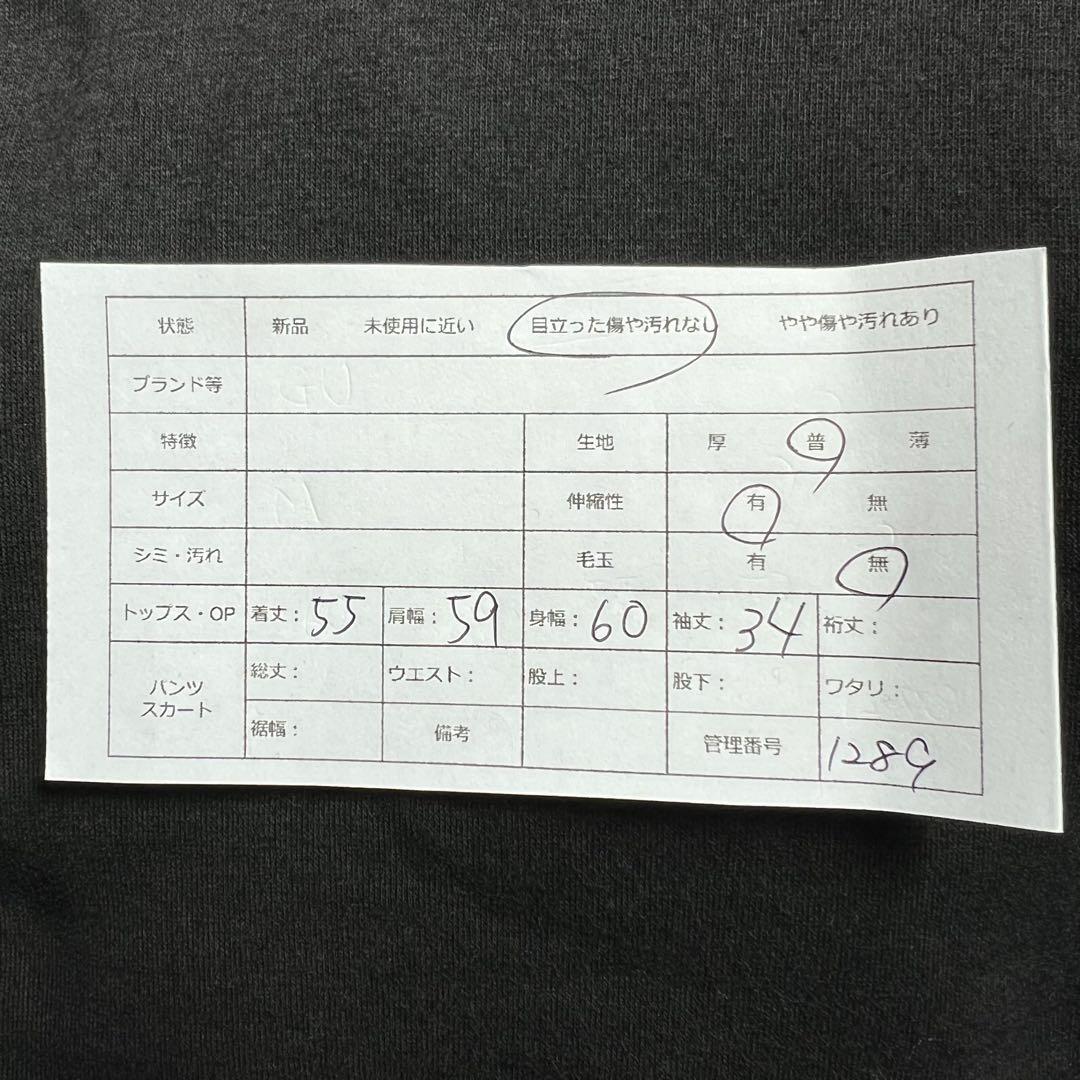 状態 新品 未使用に近い 目立った傷や汚れなし やや傷や汚れあり
ブランド等
特徴 生地 厚 普 薄
サイズ 伸縮性 有 無
シミ・汚れ 毛玉 有 無
トップス・OP 着丈：55 肩幅：59 身幅：60 袖丈：34 裄丈：
パンツ スカート 総丈： ウエスト： 股上： 股下： ワタリ：
裾幅： 備考 管理番号 1289